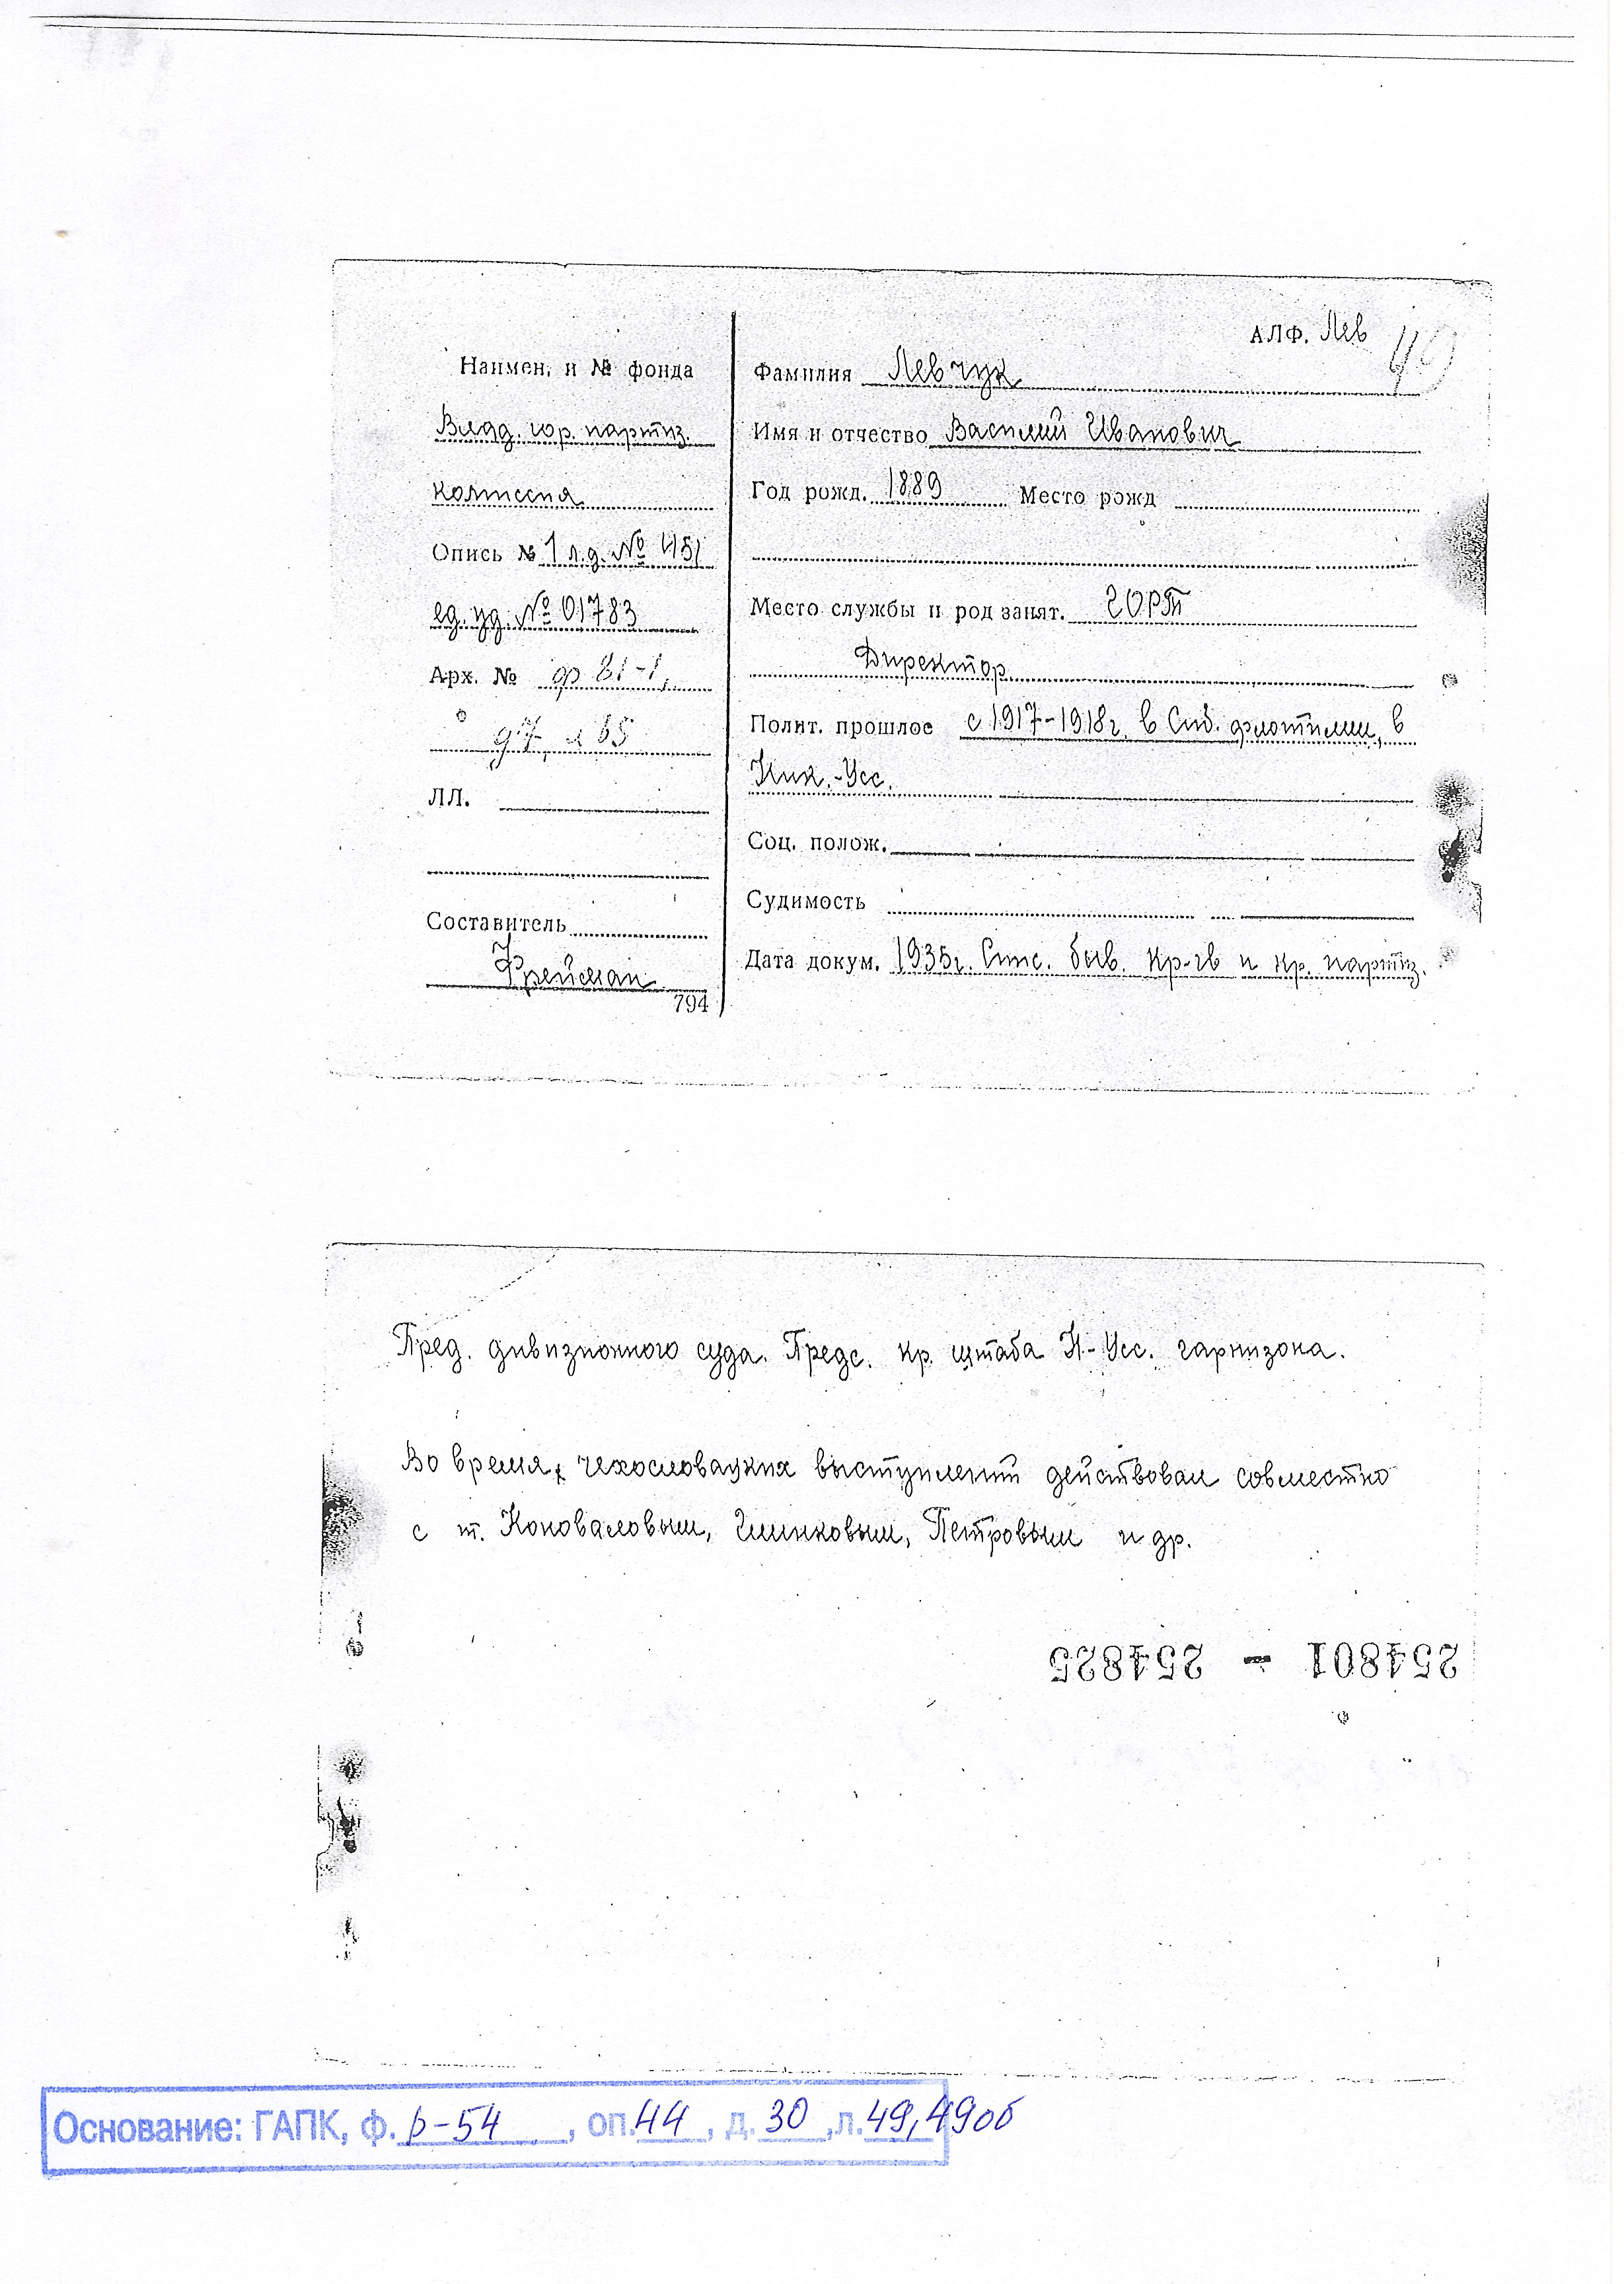 АЛФ. Лев
49
Наимен. и № фонда
Влад. гор. партиз.
комиссия
Опись № 1 л.д. № 451
ед. хр. № 01783
Арх. № ф 81-1,
д 7, л 65
ЛЛ.
Составитель
Фрейман
794
Фамилия Левчук
Имя и отчество Василий Иванович
Год рожд. 1889 Место рожд
Место службы и род занят. ГОРТ
Директор
Полит. прошлое с 1917-1918г. в Сиб. флотилии, в
Ник.-Усс.
Соц. полож.
Судимость
Дата докум. 1935г. Спис. быв. кр-гв и кр. партиз.
Пред. дивизионного суда. Предс. кр. штаба Н-Усс. гарнизона.
Во время чехословацких выступлений действовал совместно
с т. Коноваловым, Петровым и др.
254801 - 254825
Основание: ГАПК, ф. р-54, оп. 44, д. 30, л. 49, 49об